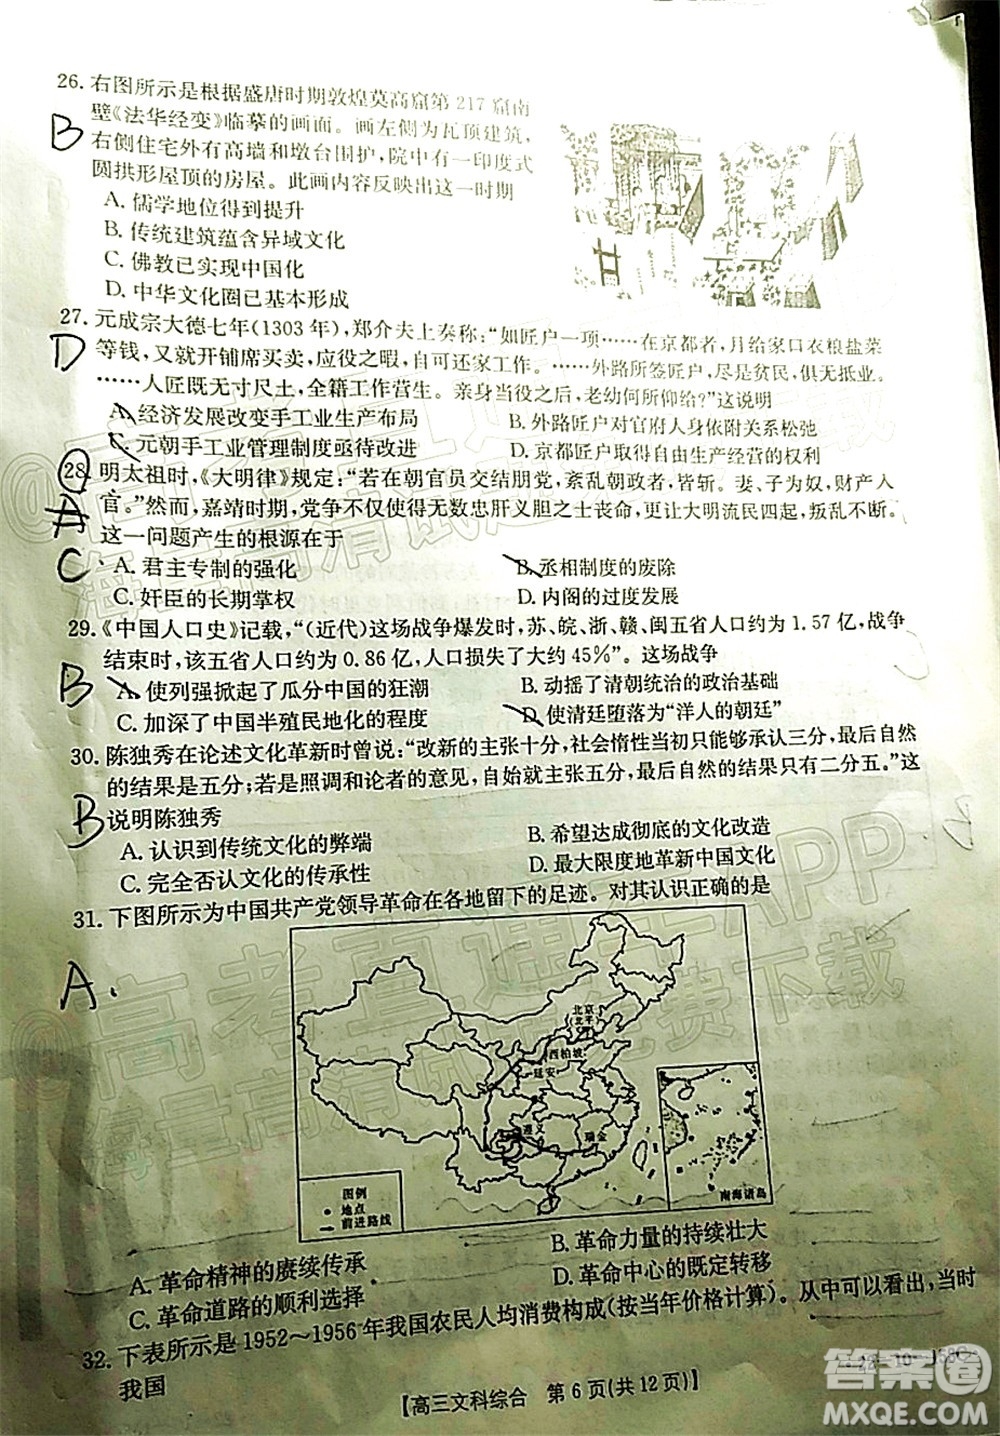 26. 右图所示是根据盛唐时期敦煌莫高窟第 217 窟南
壁《法华经变》临摹的画面。画左侧为瓦顶建筑,
B
右侧住宅外有高墙和墩台围护,院中有一印度式
圆拱形屋顶的房屋。此画内容反映出这一时期
A. 儒学地位得到提升
B. 传统建筑蕴含异域文化
C. 佛教已实现中国化
D. 中华文化圈已基本形成
27. 元成宗大德七年(1303 年),郑介夫上奏称:“如匠户一项……在京都者,月给家口衣粮盐菜
D
等钱,又就开铺席买卖,应役之暇,自可还家工作。……外路所签匠户,尽是贫民,俱无抵业。
……人匠既无寸尺土,全籍工作营生。亲身当役之后,老幼何所仰给?”这说明
A. 经济发展改变手工业生产布局
B. 外路匠户对官府人身依附关系松弛
C. 元朝手工业管理制度亟待改进
D. 京都匠户取得自主生产经营的权利
28. 明太祖时,《大明律》规定:“若在朝官员交结朋党,紊乱朝政者,皆斩。妻、子为奴,财产入
A
官。”然而,嘉靖时期,党争不仅使得无数忠肝义胆之士丧命,更让大明流民四起,叛乱不断。
这一问题产生的根源在于
C
A. 君主专制的强化
B. 丞相制度的废除
C. 奸臣的长期掌权
D. 内阁的过度放权
29. 《中国人口史》记载,“(近代)这场战争爆发时,苏、皖、浙、赣、闽五省人口约为 1.57 亿,战争
结束时,该五省人口约为 0.86 亿,人口损失了大约 45%”。这场战争
B
A. 使列强掀起了瓜分中国的狂潮
B. 动摇了清朝统治的政治基础
C. 加深了中国半殖民地化的程度
D. 使清廷堕落为“洋人的朝廷”
30. 陈独秀在论述文化革新时曾说:“改新的主张十分,社会惰性当初只能承认三分,最后自然
的结果是五分;若是照调和论者的意见,自始就主张五分,最后自然的结果只有二分五。”这
B
说明陈独秀
A. 认识到传统文化的弊端
B. 希望达成彻底的文化改造
C. 完全否认文化的传承
D. 最大限度地革新中国文化
31. 下图所示为中国共产党领导革命在各地留下的足迹。对其认识正确的是
A.
北京
(北平)
西柏坡
延安
遵义
瑞金
南海诸岛
图例
地点
前进路线
A. 革命精神的赓续传承
B. 革命力量的持续壮大
C. 革命道路的顺利选择
D. 革命中心的既定转移
32. 下表所示是 1952～1956 年我国农民人均消费构成(按当年价格计算)。从中可以看出,当时
我国
【高三文科综合 第 6 页(共 12 页)】
答案圈
MXQE.COM
高考直通车APP